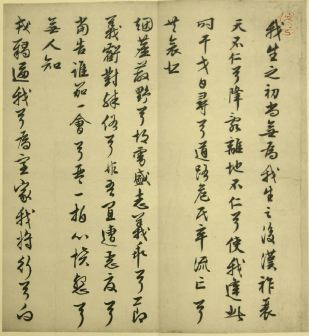 我生之初尚無為我生之後漢祚衰
天不仁兮降亂離地不仁兮使我逢此
時干戈日尋兮道路危民卒流亡兮
共哀悲
烟塵蔽野兮胡虜盛志義乖兮節
義虧對殊俗兮非我宜遭惡辱兮
當告誰笳一會兮琴一拍心憤怨兮
無人知
戎羯逼我兮為室家我將行兮向